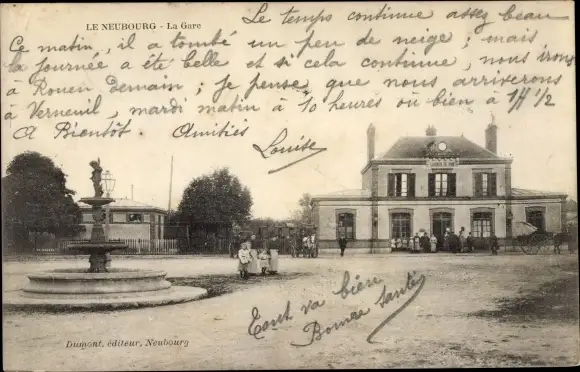 LE NEUBOURG - La Gare
Le temps continue assez beau
Ce matin, il a tombé un peu de neige ; mais
la journée a été belle et si cela continue, nous irons
à Rouen demain ; je pense que nous arriverons
à Verneuil, mardi matin à 10 heures où bien à 1H 1/2
A Bientôt. Amitiés
Louise
Tout va bien
Bonne santé
Dumont, éditeur, Neubourg